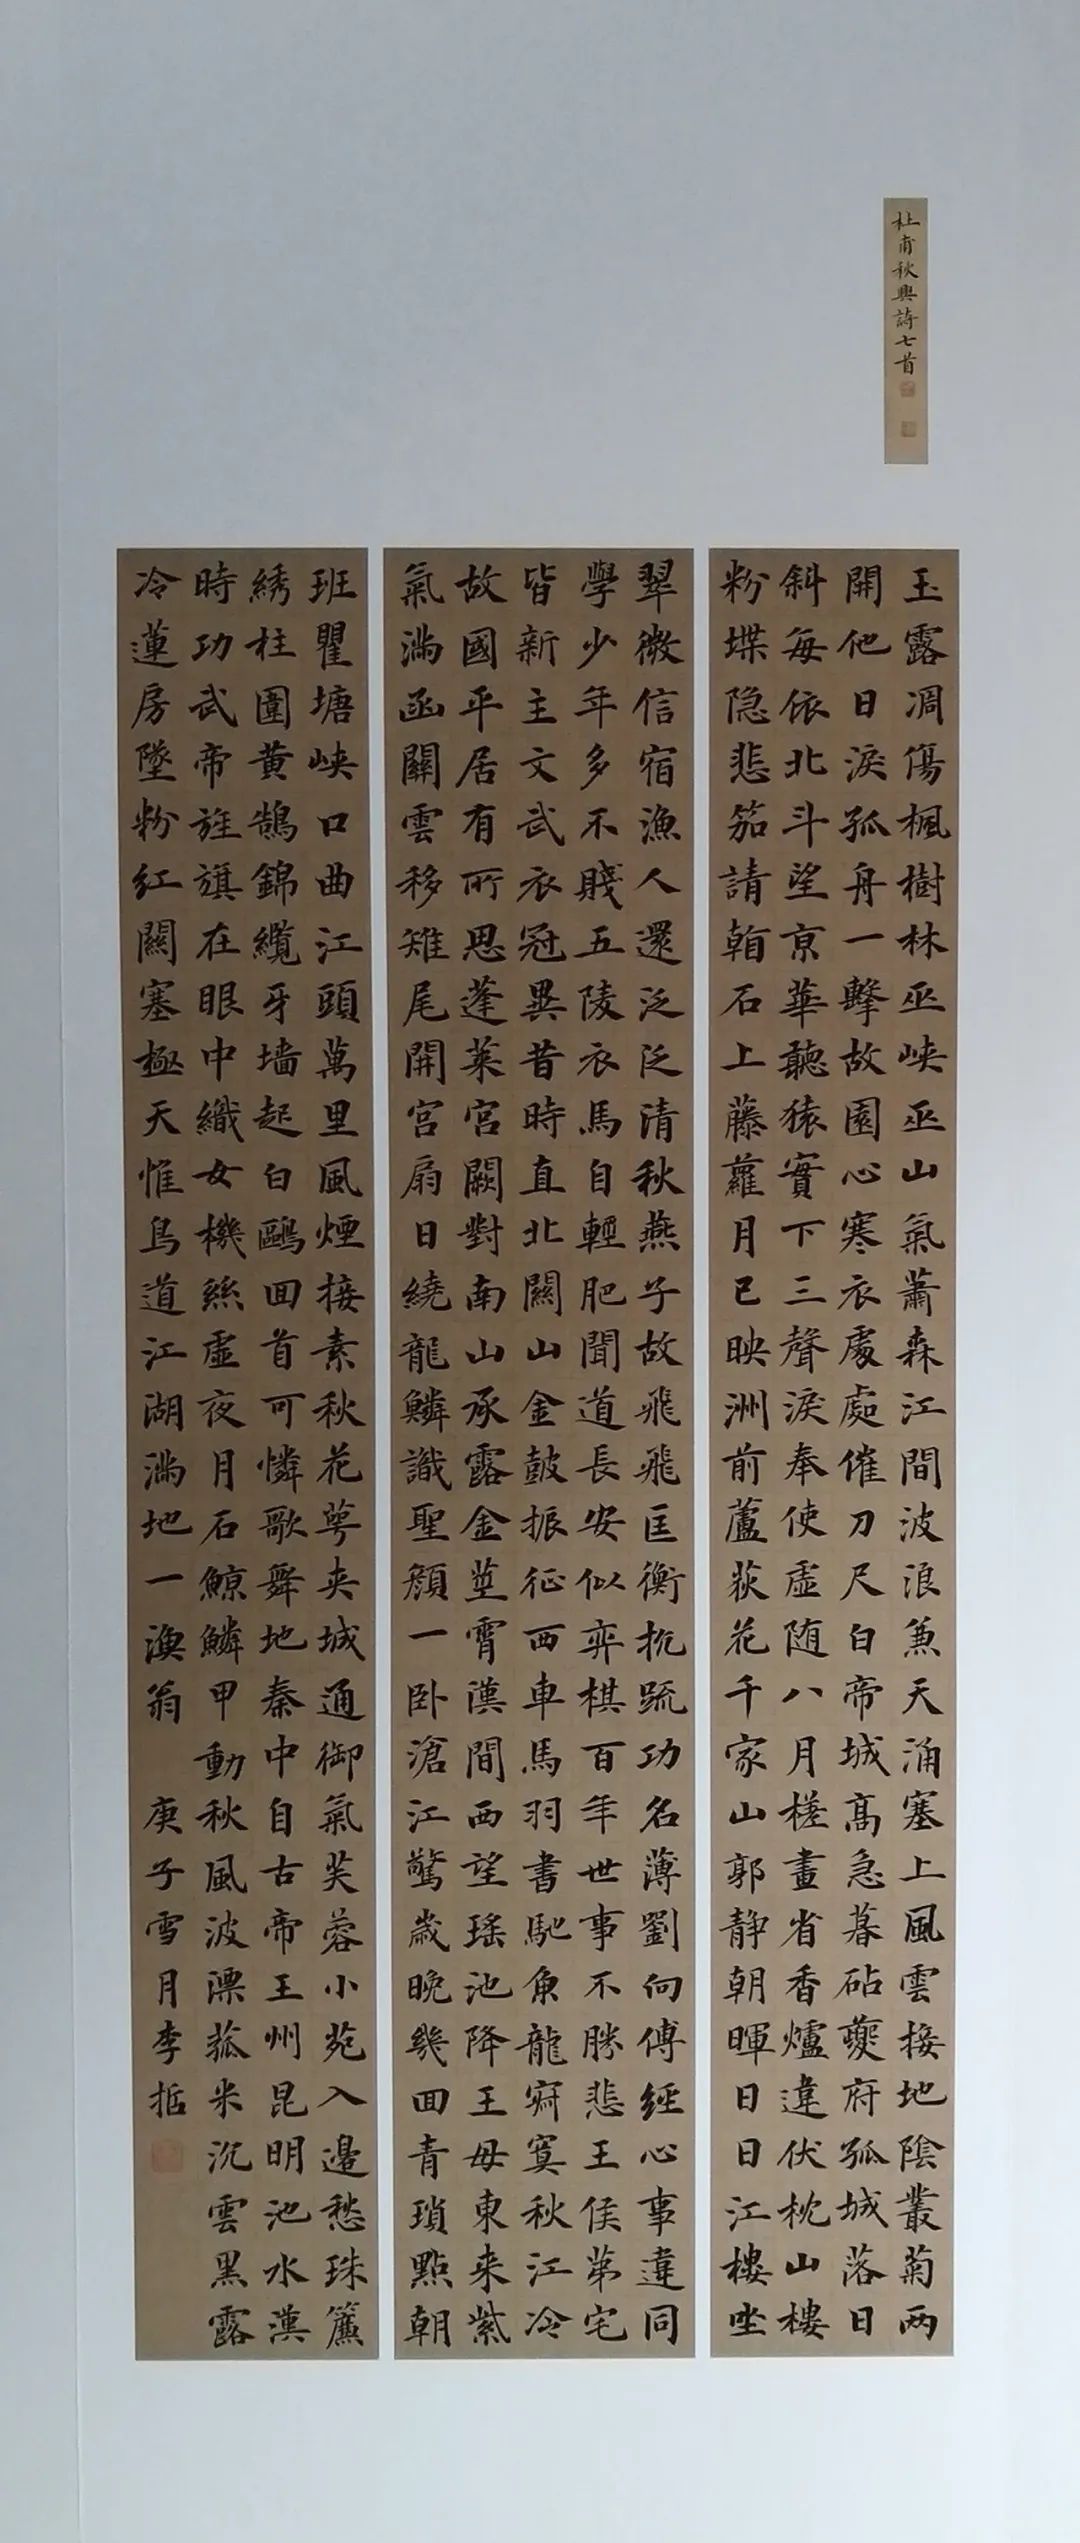 杜甫秋興詩七首
玉露凋傷楓樹林巫峽巫山氣蕭森江間波浪兼天涌塞上風雲接地陰叢菊兩
開他日淚孤舟一擊故園心寒衣處處催刀尺白帝城高急暮砧夔府孤城落日
斜每依北斗望京華聽猿實下三聲淚奉使虛随八月槎畫省香爐違伏枕山樓
粉堞隐悲笳請看石上藤蘿月已映洲前蘆荻花千家山郭静朝暉日日江樓坐
翠微信宿漁人還泛泛清秋燕子故飛飛匡衡抗疏功名薄劉向傳經心事違同
學少年多不賤五陵衣馬自輕肥聞道長安似弈棋百年世事不勝悲王侯第宅
皆新主文武衣冠異昔時直北關山金鼓振征西車馬羽書馳魚龍寂寞秋江冷
故國平居有所思蓬萊宮闕對南山承露金莖霄漢間西望瑤池降王母東来紫
氣滿函關雲移雉尾開宮扇日繞龍鱗識聖顏一卧滄江驚歲晚幾回青瑣點朝
班瞿塘峽口曲江頭萬里風煙接素秋花萼夹城通御氣芙蓉小苑入邊愁珠簾
綉柱圍黄鵠錦纜牙墙起白鷗回首可憐歌舞地秦中自古帝王州昆明池水漢
時功武帝旌旗在眼中織女機絲虛夜月石鯨鱗甲動秋風波漂菰米沉雲黑露
冷蓮房墜粉紅關塞極天惟鳥道江湖滿地一漁翁 庚子雪月李